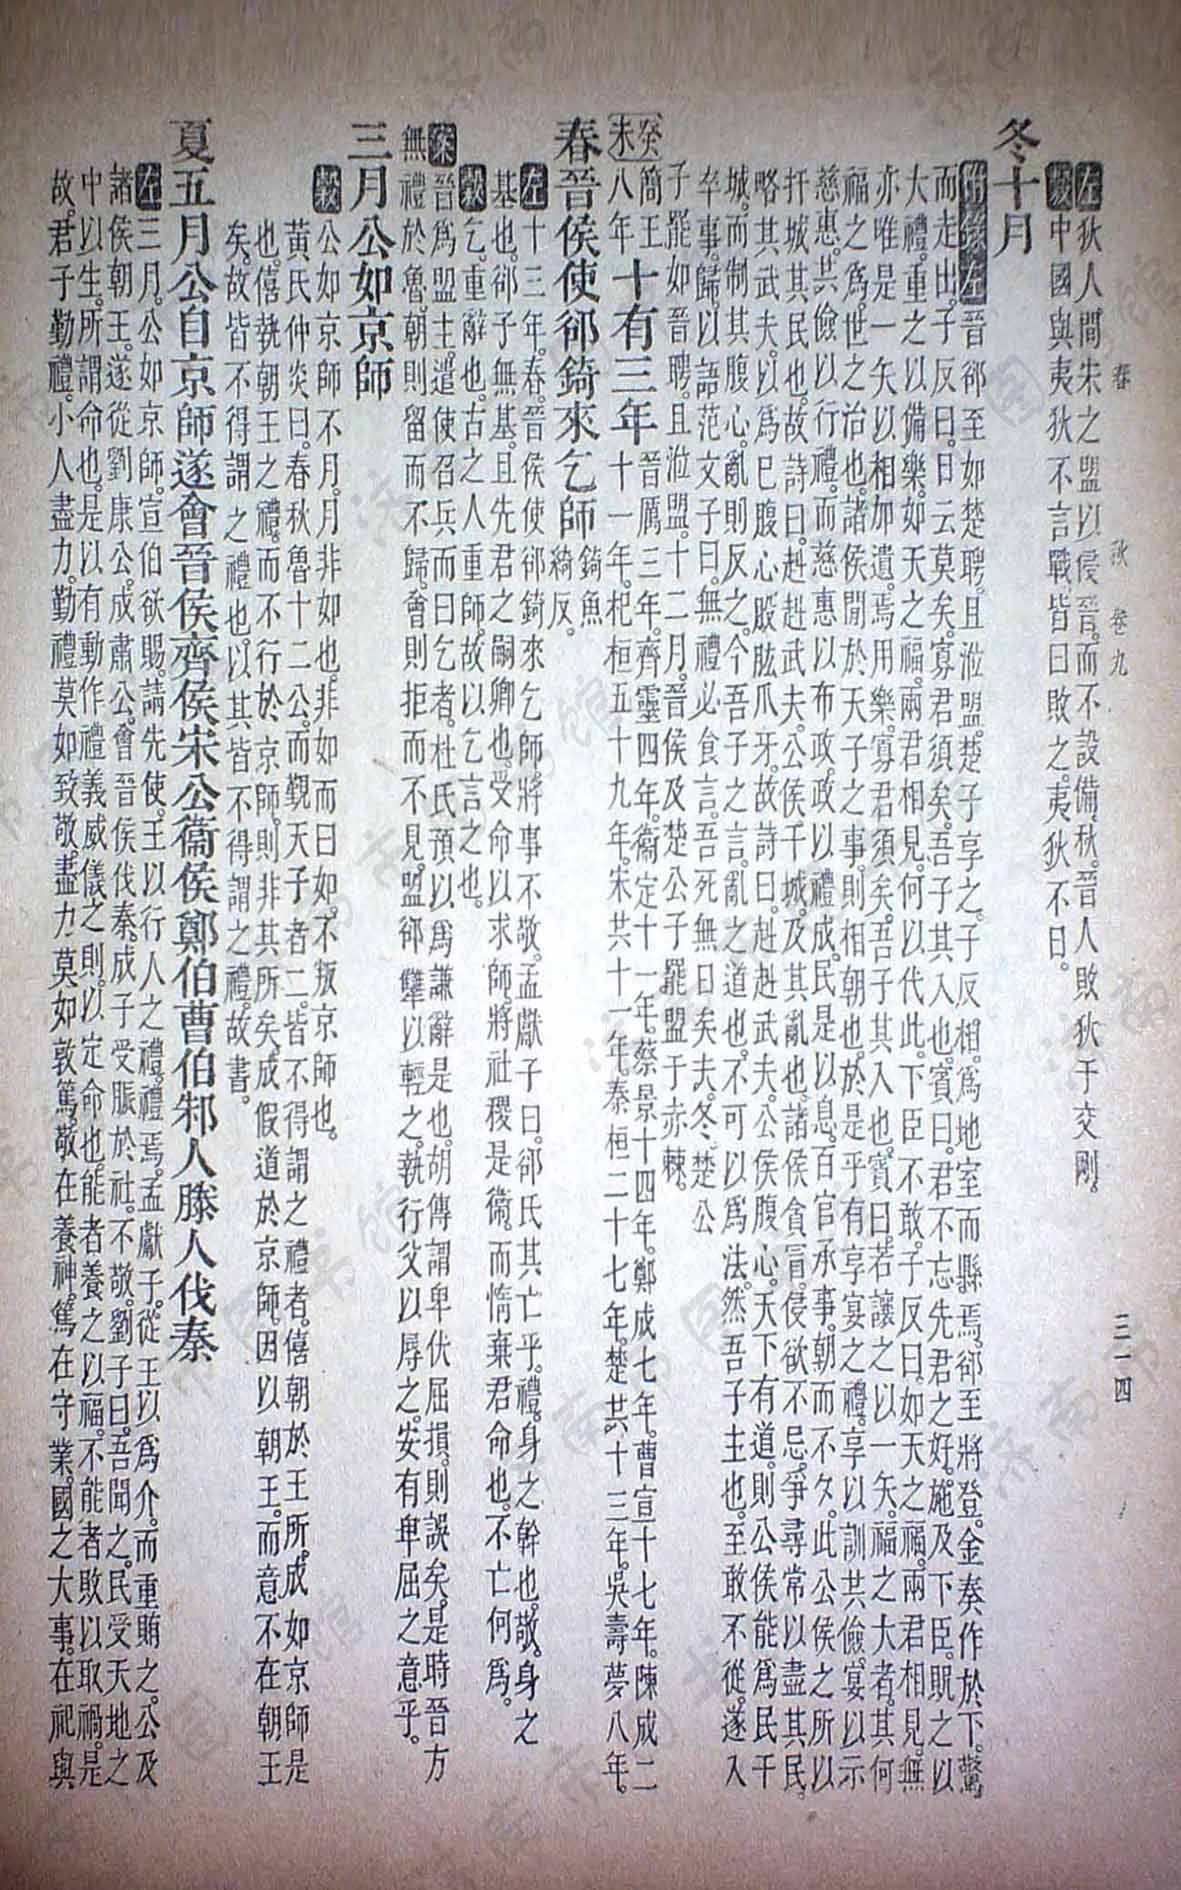 春 秋 卷九 三一四
左狄人間宋之盟以侵晉。而不設備。秋。晉人敗狄于交剛。
穀中國與夷狄不言戰。皆曰敗之。夷狄不日。
冬十月
附錄左晉郤至如楚聘。且涖盟。楚子享之。子反相。爲地室而縣焉。郤至將登。金奏作於下。驚
而走出。子反曰。日云莫矣。寡君須矣。吾子其入也。賓曰。君不忘先君之好。施及下臣。貺之以
大禮。重之以備樂。如天之福。兩君相見。何以代此。下臣不敢。子反曰。如天之福。兩君相見。無
亦唯是一矢以相加遺。焉用樂。寡君須矣。吾子其入也。賓曰。若讓之以一矢。福之大者。其何
福之爲。世之治也。諸侯閒於天子之事。則相朝也。於是乎有享宴之禮。享以訓共儉。宴以示
慈惠。共儉以行禮。而慈惠以布政。政以禮成。民是以息。百官承事。朝而不夕。此公侯之所以
扞城其民也。故詩曰。赳赳武夫。公侯干城。及其亂也。諸侯貪冒。侵欲不忌。爭尋常以盡其民。
略其武夫。以爲己腹心股肱爪牙。故詩曰。赳赳武夫。公侯腹心。天下有道。則公侯能爲民干
城。而制其腹心。亂則反之。今吾子之言。亂之道也。不可以爲法。然吾子主也。至敢不從。遂入
卒事。歸。以語范文子曰。無禮必食言。吾死無日矣夫。冬。楚公
子罷如晉聘。且涖盟。十二月。晉侯及楚公子罷盟于赤棘。
癸未 簡王八年 十有三年 晉厲三年。齊靈四年。衞定十一年。蔡景十四年。鄭成七年。曹宣十七年。陳成二十一年。杞桓五十九年。宋共十一年。秦桓二十七年。楚共十三年。吳壽夢八年。
春晉侯使郤錡來乞師 錡魚綺反。
左十三年。春。晉侯使郤錡來乞師。將事不敬。孟獻子曰。郤氏其亡乎。禮。身之幹也。敬。身之
基也。郤子無基。且先君之嗣卿也。受命以求師。將社稷是衞。而惰。棄君命也。不亡何爲。
穀乞。重辭也。古之人重師。故以乞言之也。
案晉爲盟主。遣使召兵而曰乞者。杜氏預以爲謙辭是也。胡傳謂卑伏屈損。則誤矣。是時晉方
無禮於魯。朝則留而不歸。會則拒而不見。盟郤犫以輕之。執行父以辱之。安有卑屈之意乎。
三月公如京師
穀公如京師不月。月非如也。非如而曰如。不叛京師也。
黃氏仲炎曰。春秋魯十二公。而覲天子者二。皆不得謂之禮者。僖朝於王所。成如京師是
也。僖執朝王之禮。而不行於京師。則非其所矣。成假道於京師。因以朝王。而意不在朝王
矣。故皆不得謂之禮也。以其皆不得謂之禮。故書。
夏五月公自京師遂會晉侯齊侯宋公衞侯鄭伯曹伯邾人滕人伐秦
左三月。公如京師。宣伯欲賜。請先使。王以行人之禮禮焉。孟獻子從。王以爲介。而重賄之。公及
諸侯朝王。遂從劉康公。成肅公。會晉侯伐秦。成子受脤於社。不敬。劉子曰。吾聞之。民受天地之
中以生。所謂命也。是以有動作禮義威儀之則。以定命也。能者養之以福。不能者敗以取禍。是
故。君子勤禮。小人盡力。勤禮莫如致敬。盡力莫如敦篤。敬在養神。篤在守業。國之大事。在祀與